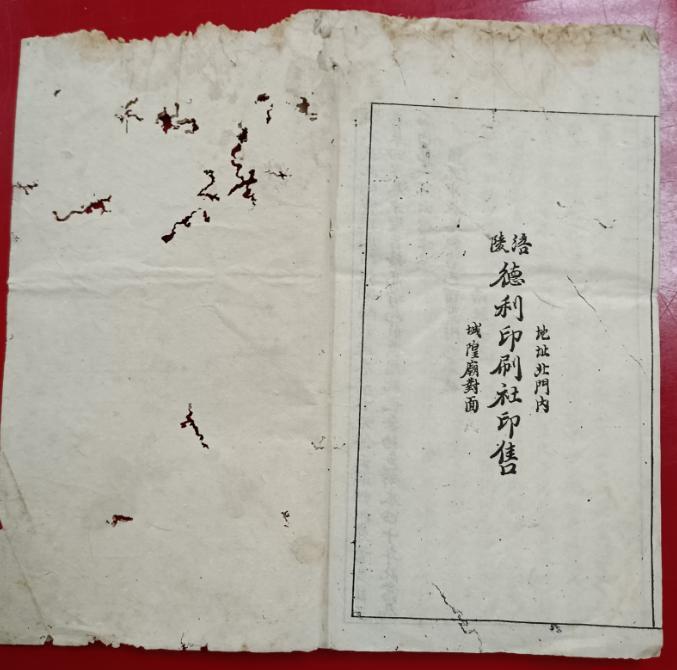 涪陵
德利印刷社印售
地址北門內
城隍廟對面